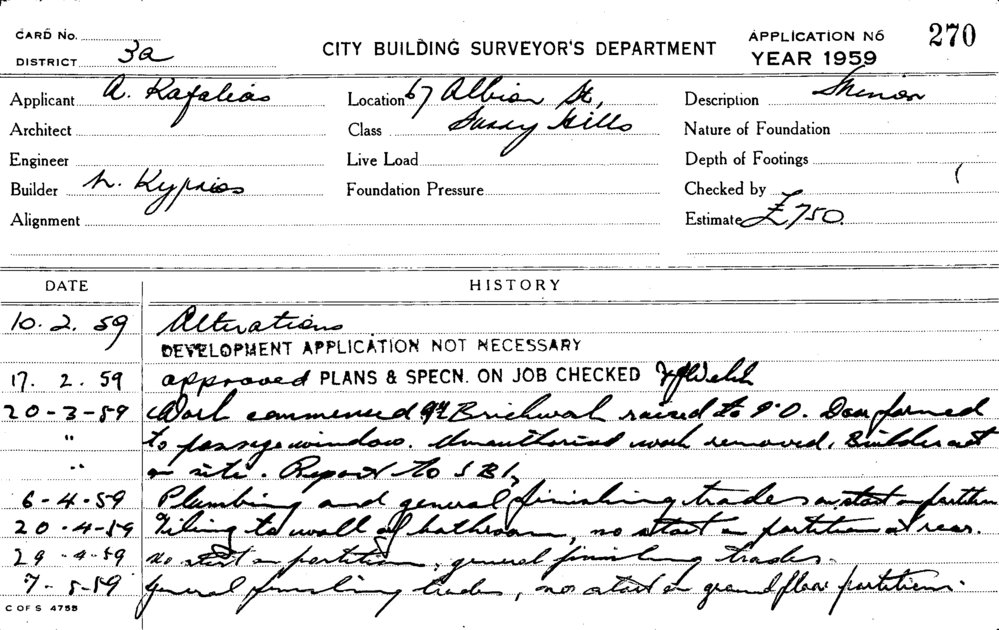 CARD No.
DISTRICT 3a
CITY BUILDING SURVEYOR'S DEPARTMENT
APPLICATION No 270
YEAR 1959
Applicant A. Kafalias
Location 67 Albion St,
Description
Architect
Class Surry Hills
Nature of Foundation
Engineer
Live Load
Depth of Footings
Builder N. Kyprios
Foundation Pressure
Checked by
Alignment
Estimate £750
DATE HISTORY
10. 2. 59 Alterations
DEVELOPMENT APPLICATION NOT NECESSARY
17. 2. 59 approved PLANS & SPECN. ON JOB CHECKED Welch
20-3-59 Work commenced Brickwork raised to Door formed
" to passage window. Unauthorised work removed. Builder not
" on site. Report to S B I,
6-4-59 Plumbing and general finishing trades no start on partition
20-4-59 Tiling to wall of bathroom, no start on partition at rear.
29-4-59 No start on partition, general finishing trades.
7-5-59 General finishing trades, no start on ground floor partition.
C OF S 475B